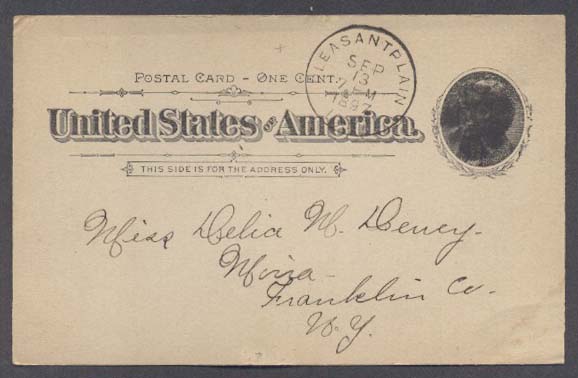 LEASANTPLAIN
SEP
13
PM
1897
POSTAL CARD - ONE CENT.
United States of America.
THIS SIDE IS FOR THE ADDRESS ONLY.
Miss Delia M.
Moira
Franklin Co.
N.Y.